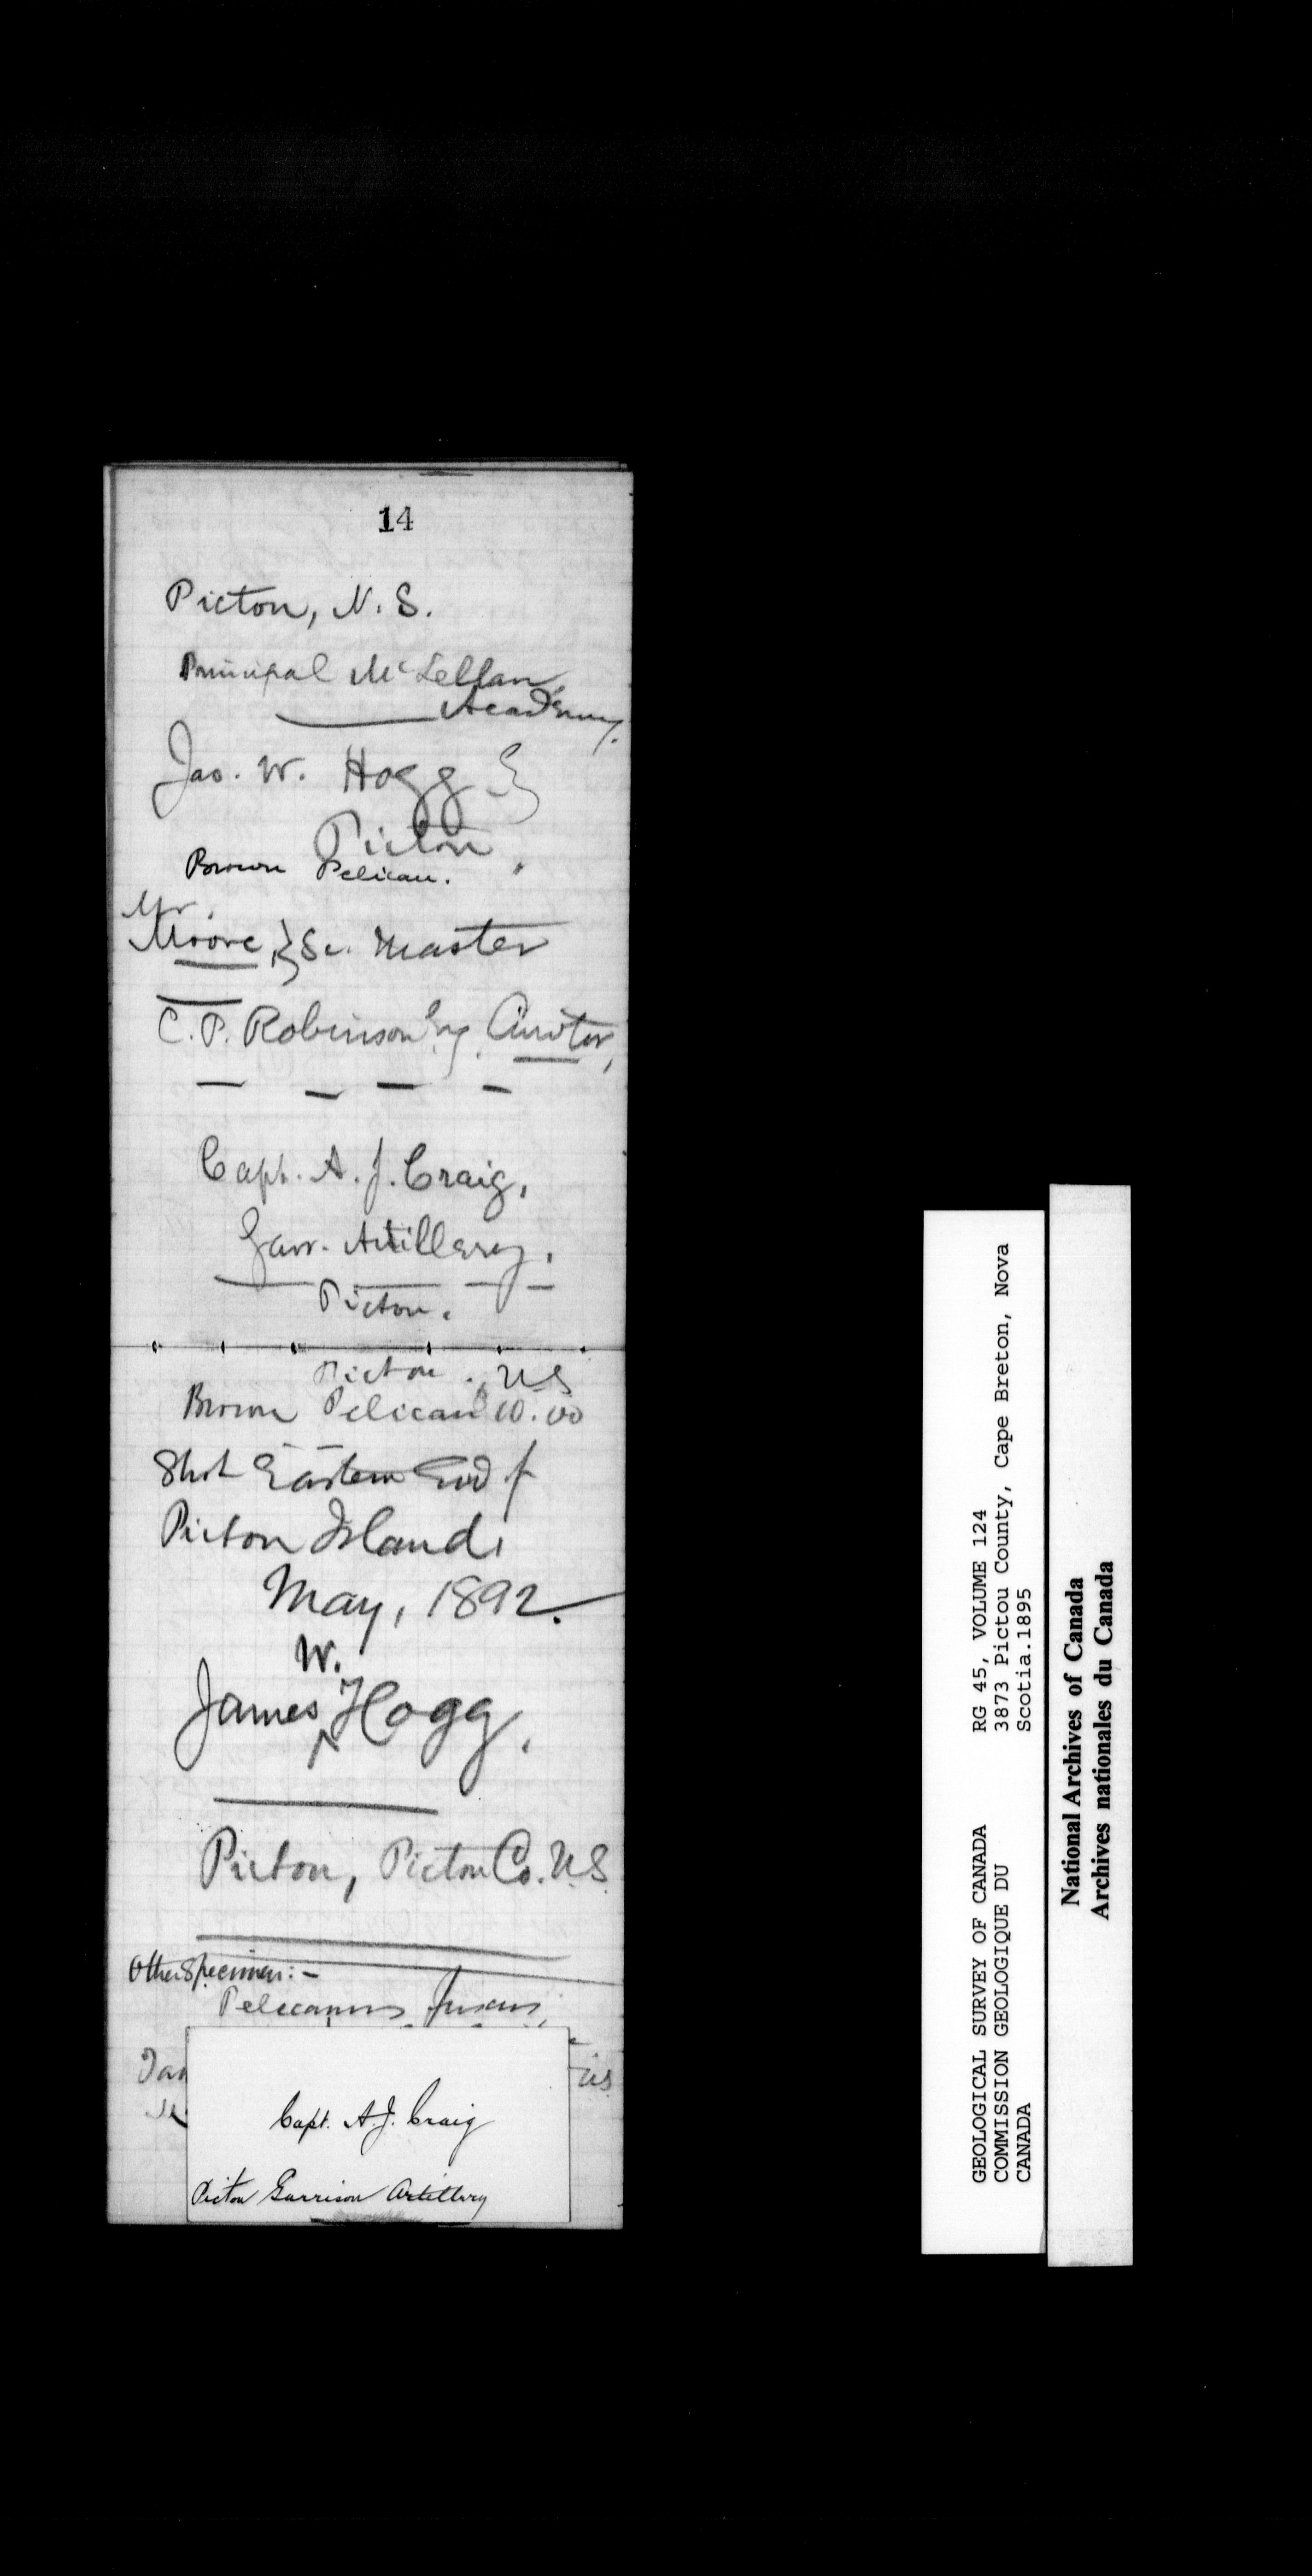 14
Pictou, N.S.
Principal McLellan,
Academy.
Jas. W. Hogg
Pictou.
Brown Pelican.
Mr.
Moore, Sc. Master
C. P. Robinson Esq. Curator,
Capt. A. J. Craig,
Garr. Artillery.
Pictou.
Pictou. NS
Brown Pelican 10.00
Shot Eastern End of
Pictou Island.
May, 1892.
W.
James Hogg.
Pictou, Pictou Co. N.S.
Other Specimen:-
Pelecanus fuscus,
Capt. A. J. Craig
Pictou Garrison Artillery
GEOLOGICAL SURVEY OF CANADA
COMMISSION GEOLOGIQUE DU
CANADA
RG 45, VOLUME 124
3873 Pictou County, Cape Breton, Nova
Scotia.1895
National Archives of Canada
Archives nationales du Canada